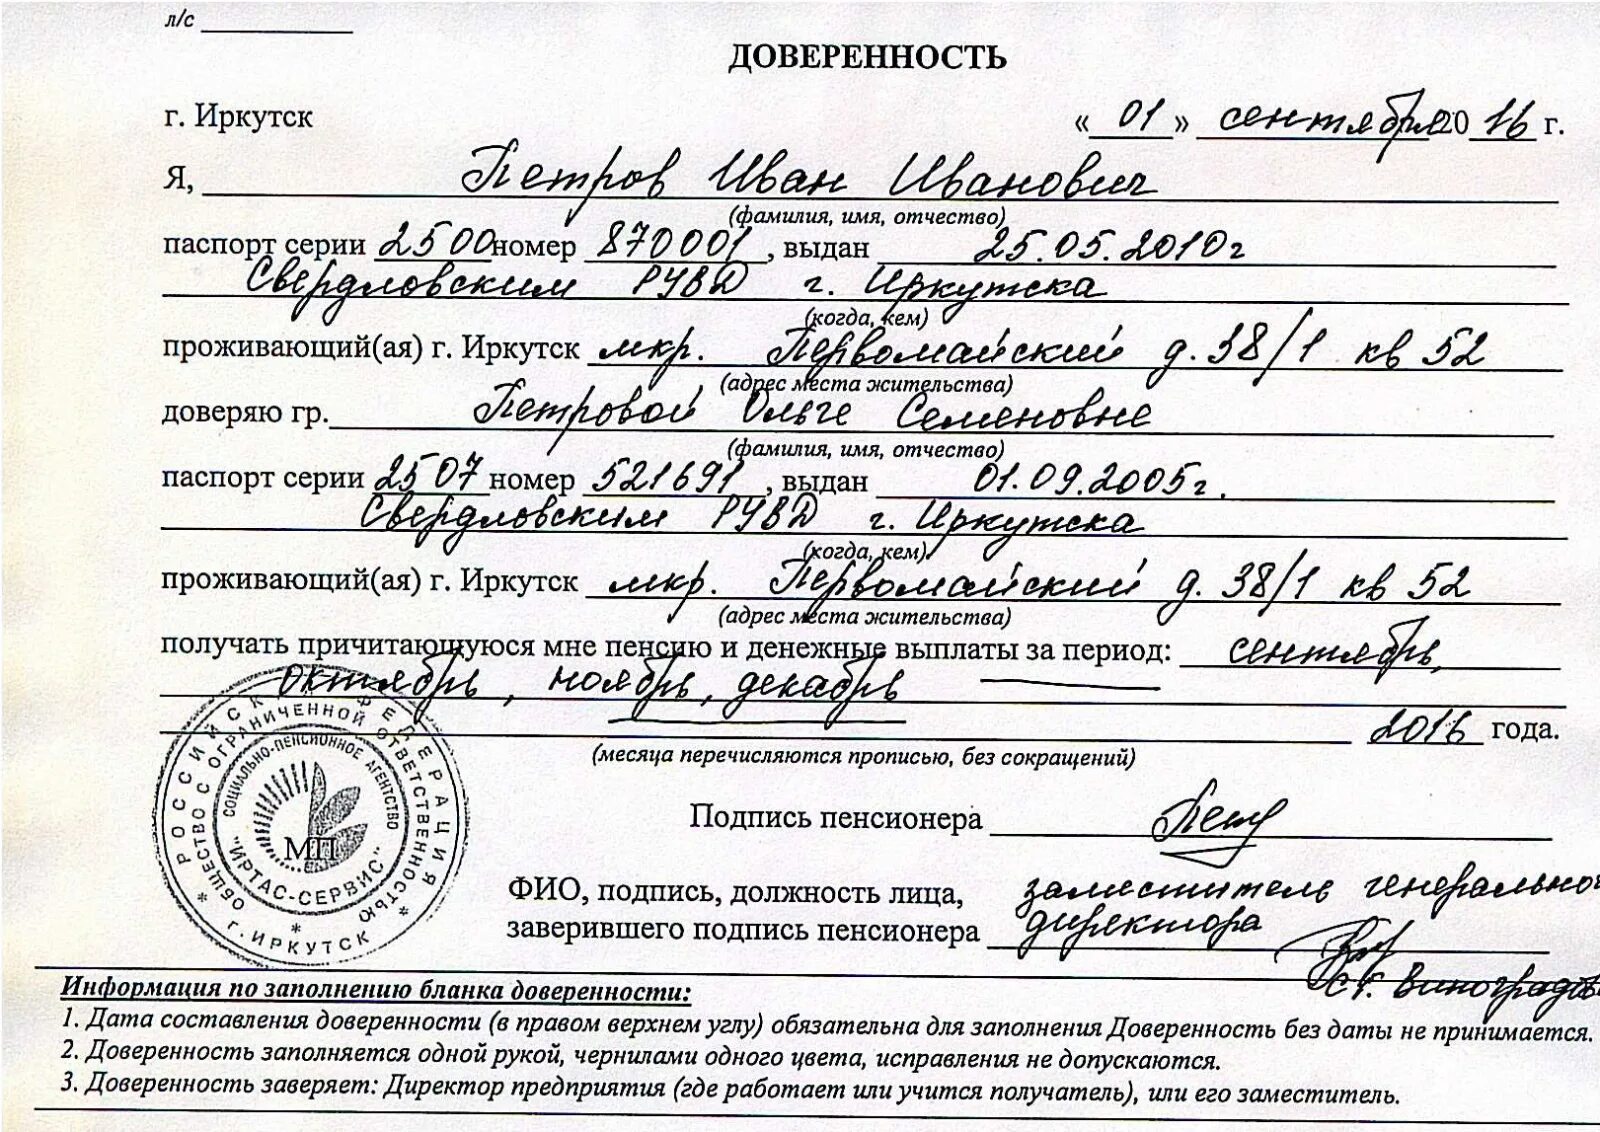 л/с
ДОВЕРЕННОСТЬ
г. Иркутск «01» сентября 2016 г.
Я, Петров Иван Иванович
(фамилия, имя, отчество)
паспорт серии 2500 номер 870001, выдан 25.05.2010г
Свердловским РУВД г. Иркутска
(когда, кем)
проживающий(ая) г. Иркутск мкр. Первомайский д. 38/1 кв 52
(адрес места жительства)
доверяю гр. Петровой Ольге Семеновне
(фамилия, имя, отчество)
паспорт серии 2507 номер 521691, выдан 01.09.2005г.
Свердловским РУВД г. Иркутска
(когда, кем)
проживающий(ая) г. Иркутск мкр. Первомайский д. 38/1 кв 52
(адрес места жительства)
получать причитающуюся мне пенсию и денежные выплаты за период: сентябрь,
октябрь, ноябрь, декабрь
2016 года.
(месяца перечисляются прописью, без сокращений)
РОССИЙСКАЯ ФЕДЕРАЦИЯ
* г. ИРКУТСК *
ОБЩЕСТВО С ОГРАНИЧЕННОЙ ОТВЕТСТВЕННОСТЬЮ
СОЦИАЛЬНО-ПЕНСИОННОЕ АГЕНТСТВО
"ИРТАС-СЕРВИС"
МП
Подпись пенсионера
ФИО, подпись, должность лица, заместитель генерального
заверившего подпись пенсионера директора
Информация по заполнению бланка доверенности:
1. Дата составления доверенности (в правом верхнем углу) обязательна для заполнения Доверенность без даты не принимается.
2. Доверенность заполняется одной рукой, чернилами одного цвета, исправления не допускаются.
3. Доверенность заверяет: Директор предприятия (где работает или учится получатель), или его заместитель.